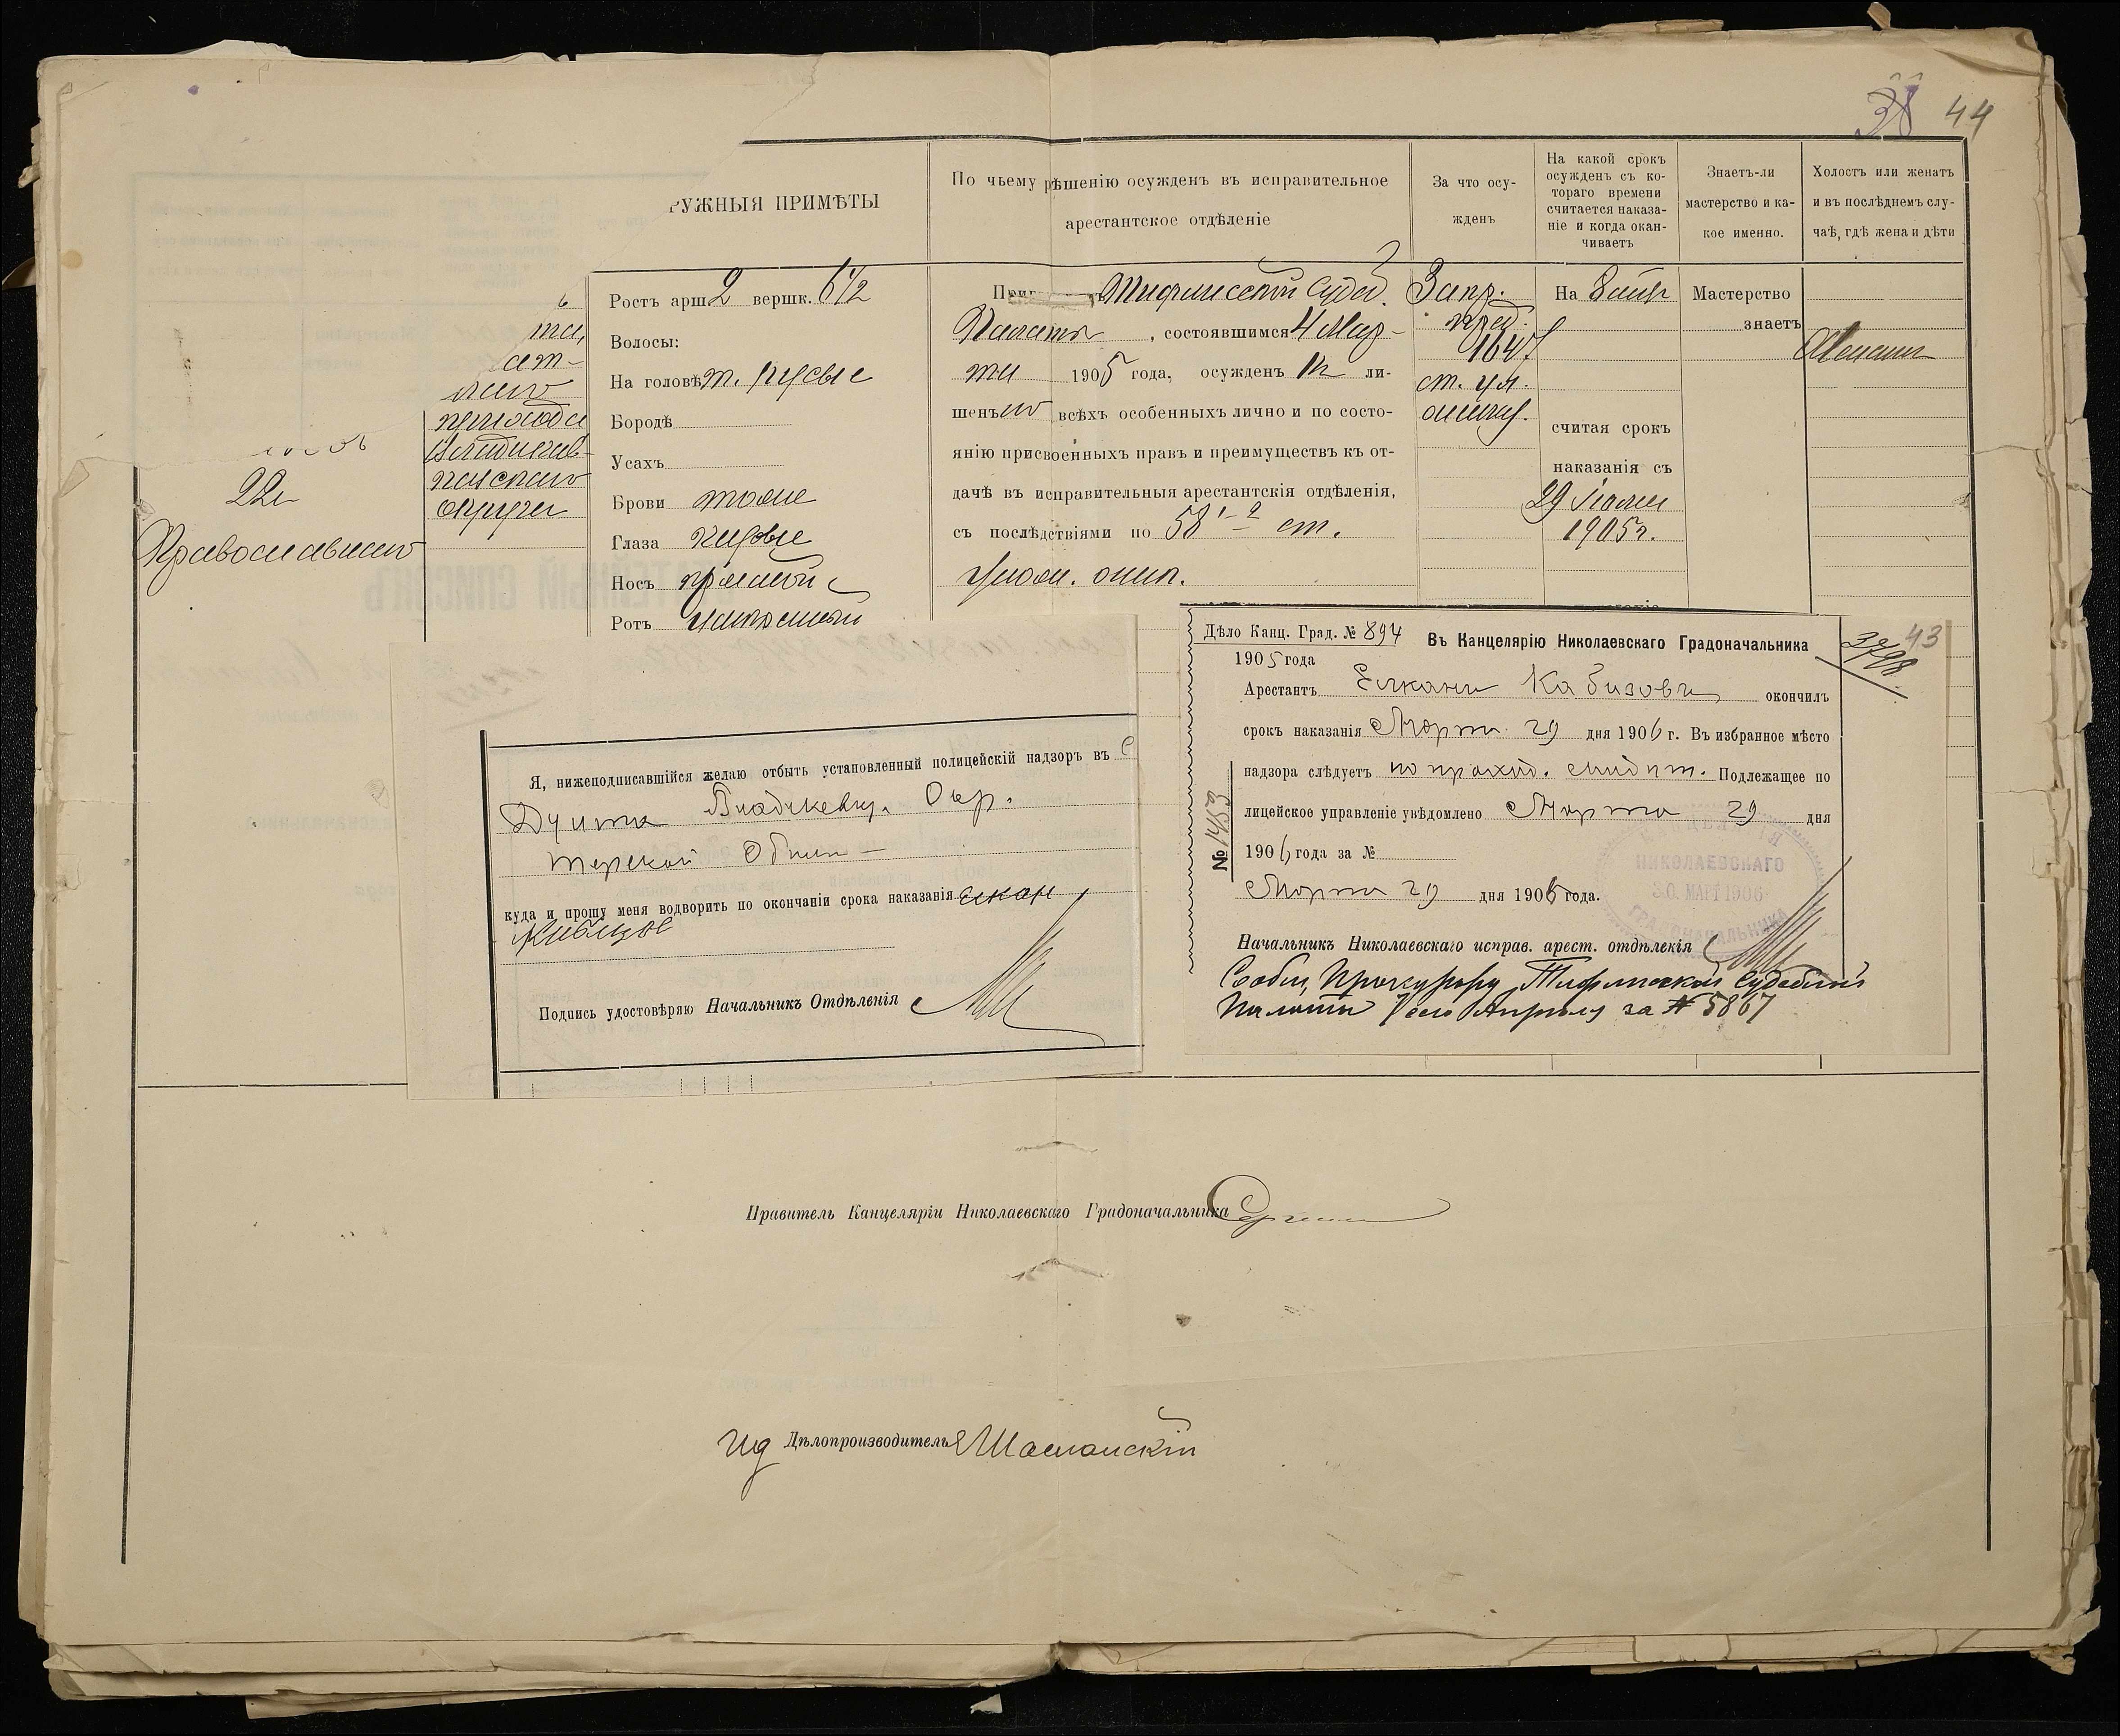 38 44
РУЖНЫЯ ПРИМѢТЫ
По чьему рѣшенію осужденъ въ исправительное
арестантское отдѣленіе
За что осу-
жденъ
На какой срокъ
осужденъ съ ко-
тораго времени
считается наказа-
ніе и когда окан-
чиваетъ
Знаетъ-ли
мастерство и ка-
кое именно.
Холостъ или женатъ
и въ послѣднемъ слу-
чаѣ, гдѣ жена и дѣти
22
Православнаго
прихода
Владикав-
казскаго
округа
Ростъ арш. 2 вершк. 6 1/2
Волосы:
На головѣ т. русые
Бородѣ
Усахъ
Брови тоже
Глаза карые
Носъ прямой
Ротъ
Тифлисской Судеб.
Палаты, состоявшимся 4 Мар-
та 1905 года, осужденъ къ ли-
шенью всѣхъ особенныхъ лично и по состо-
янію присвоенныхъ правъ и преимуществъ къ от-
дачѣ въ исправительныя арестантскія отдѣленія,
съ послѣдствіями по 58 1-2 ст.
Улож. о нак.
За пр.
пред.
1647
ст. ул.
о нак.
На
считая срокъ
наказанія съ
29
1905 г.
Мастерство
знаетъ
Женатъ
Я, нижеподписавшійся желаю отбыть установленный полицейскій надзоръ въ С
Владикавк. Окр.
Терской Област
куда и прошу меня водворить по окончаніи срока наказанія Елкан
Кабизов
Подпись удостовѣряю Начальникъ Отдѣленія
Дѣло Канц. Град. № 894
1905 года
Въ Канцелярію Николаевскаго Градоначальника
43
Арестантъ Елканъ Кабизовъ окончилъ
срокъ наказанія Марта 29 дня 1906 г. Въ избранное мѣсто
надзора слѣдуетъ по проход. свидѣт. Подлежащее по
лицейское управленіе увѣдомлено Марта 29 дня
1906 года за №
Марта 29 дня 1906 года.
№ 1453
НИКОЛАЕВСКАГО
30 МАРТ 1906
ГРАДОНАЧАЛЬНИКА
Начальникъ Николаевскаго исправ. арест. отдѣленія
Сообщ. Прокурору Тифлисской Судебной
Палаты 1 сего Апрѣля за № 5867
Правитель Канцеляріи Николаевскаго Градоначальника
Ид Дѣлопроизводитель